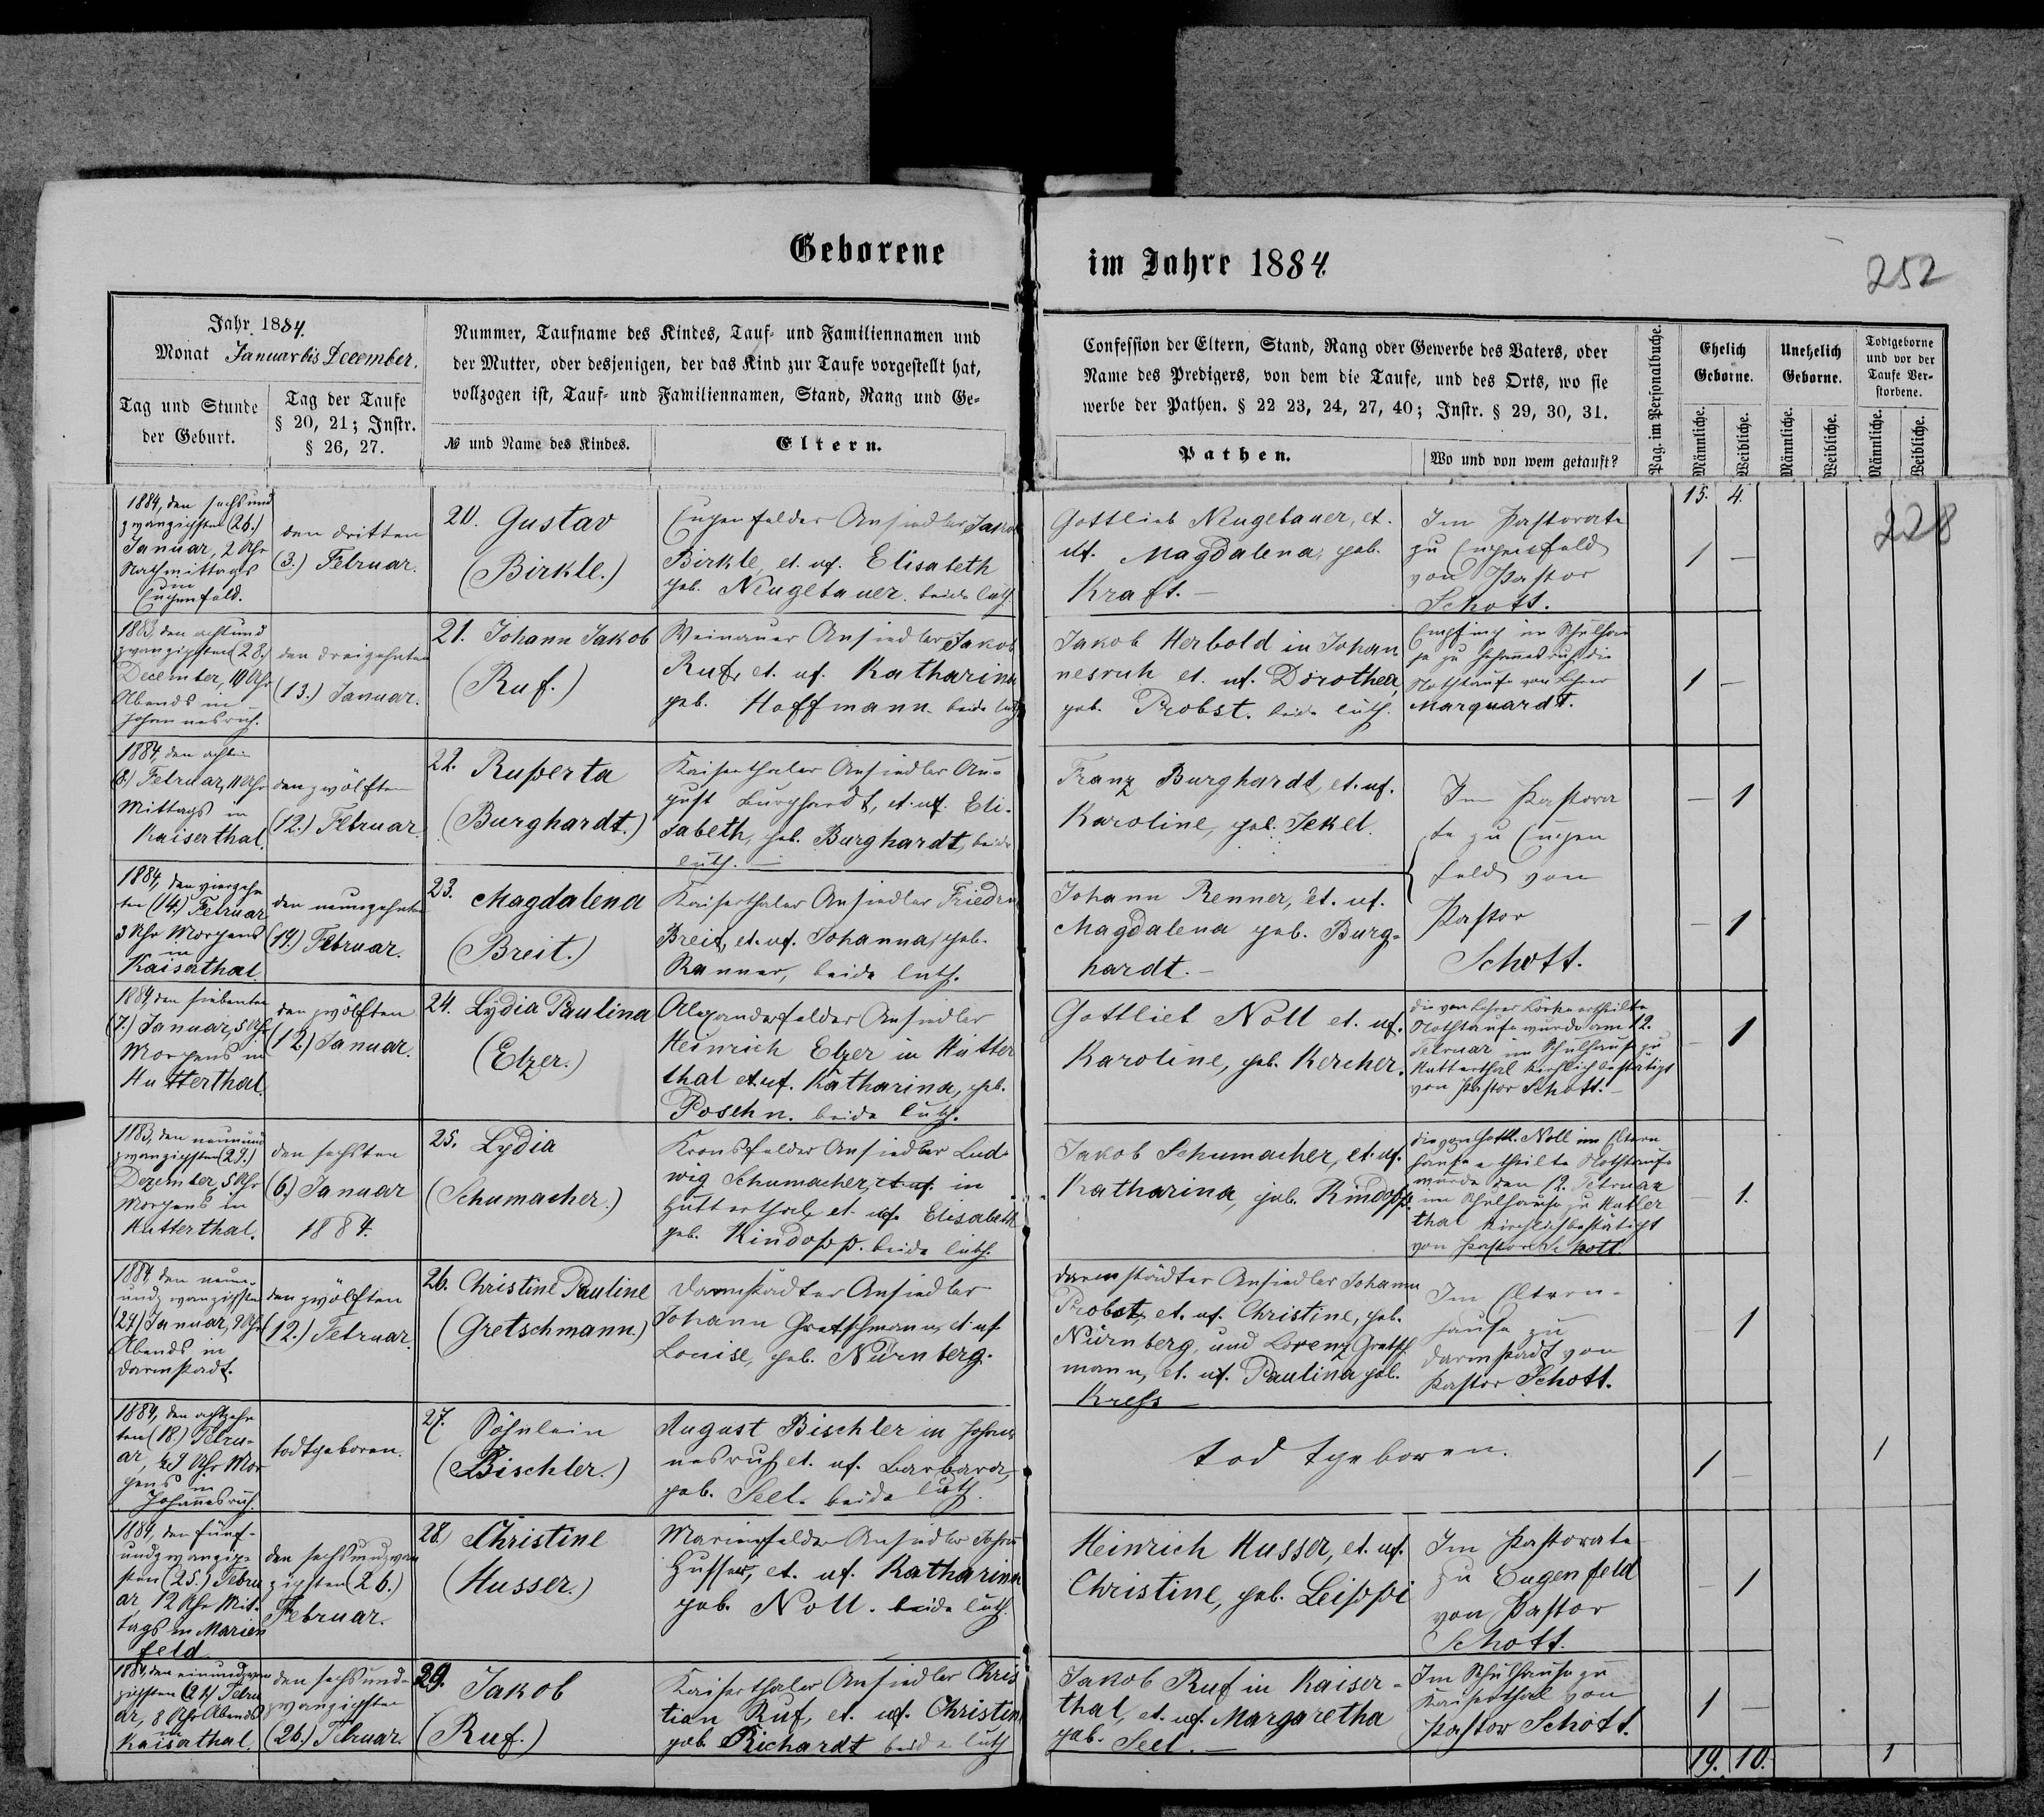 Geborene
im Jahre 1884.
252
Jahr 1884.
Monat Januar bis December.
Tag und Stunde
der Geburt.
Tag der Taufe
§ 20, 21; Instr.
§ 26, 27.
Nummer, Taufname des Kindes, Tauf- und Familiennamen und
der Mutter, oder desjenigen, der das Kind zur Taufe vorgestellt hat,
vollzogen ist, Tauf- und Familiennamen, Stand, Rang und Ge-
№ und Name des Kindes.
Eltern.
Confession der Eltern, Stand, Rang oder Gewerbe des Vaters, oder
Name des Predigers, von dem die Taufe, und des Orts, wo sie
werbe der Pathen. § 22 23, 24, 27, 40; Instr. § 29, 30, 31.
Pathen.
Wo und von wem getauft?
Pag. im Personalbuche.
Ehelich
Geborne.
Unehelich
Geborne.
Todtgeborne
und vor der
Taufe Ver-
storbene.
Männliche.
Weibliche.
Männliche.
Weibliche.
Männliche.
Weibliche.
15. 4.
228
1884, den sechsund
zwanzigsten (26.)
Januar, 2 Uhr
Nachmittags
in
Eugenfeld.
den dritten
(3.) Februar.
20. Gustav
(Birkle.)
Eugenfelder Ansiedler Jakob
Birkle, et. ux. Elisabeth
geb. Neugebauer. beide luth.
Gottlieb Neugebauer, et.
ux. Magdalena, geb.
Kraft. –
Im Pastorate
zu Eugenfeld
von Pastor
Schott.
1 –
1883, den achtund
zwanzigsten (28.)
December, 10 Uhr
Abends in
Johannesruh.
den dreizehnten
(13.) Januar.
21. Johann Jakob
(Ruf.)
Weinauer Ansiedler Jakob
Ruf, et. ux. Katharina
geb. Hoffmann. beide luth
Jakob Herbold in Johan
nesruh et. ux. Dorothea,
geb. Probst. beide luth.
Empfing im Schulhau
se zu Johannesruh die
Nothtaufe von Lehrer
Marquardt.
1 –
1884, den achten
(8.) Februar, 11 Uhr
Mittags in
Kaiserthal.
den zwölften
(12.) Februar
22. Ruperta
(Burghardt.)
Kaiserthaler Ansiedler Au-
gust Burghardt, et. ux. Eli-
sabeth, geb. Burghardt, beide
luth. –
Franz Burghardt, et. ux.
Karoline, geb. Jekel.
Im Pastora
te zu Eugen
feld von
Pastor
Schott.
– 1
1884, den vierzehn
ten (14.) Februar
3 Uhr Morgens
in
Kaiserthal
den neunzehnten
(19.) Februar.
23. Magdalena
(Breit.)
Kaiserthaler Ansiedler Friedri
Breit, et. ux. Johanna, geb.
Renner, beide luth.
Johann Renner, et. ux.
Magdalena geb. Burg-
hardt. –
– 1
1884, den siebenten
(7.) Januar, 5 Uhr
Morgens in
Hutterthal.
den zwölften
(12.) Januar.
24. Lydia Paulina
(Elzer.)
Alexanderfelder Ansiedler
Heinrich Elzer in Hutter
thal et. ux. Katharina, geb.
Poschn. beide luth.
Gottlieb Noll et. ux.
Karoline, geb. Kercher.
die von Lehrer ertheilte
Nothtaufe wurde am 12.
Februar im Schulhause zu
Hutterthal kirchlich bestätigt
von Pastor Schott. –
– 1
1883, den neunund
zwanzigsten (29.)
Dezember, 5 Uhr
Morgens in
Hutterthal.
den sechsten
(6.) Januar
1884.
25. Lydia
(Schumacher.)
Kronsfelder Ansiedler Lud-
wig Schumacher, et. ux. in
Hutterthal et. ux. Elisabeth
geb. Kindopp. beide luth.
Jakob Schumacher, et. ux.
Katharina, geb. Kindopp.
die von Gottl. Noll im Eltern
hause ertheilte Nothtaufe
wurde den 12. Februar
im Schulhause zu Hutter
thal kirchlich bestätigt
von Pastor Schott
– 1.
1884, den neun-
undzwanzigsten
(29.) Januar, 9 Uhr
Abends in
Darmstadt.
den zwölften
(12.) Februar.
26. Christine Pauline
(Gretschmann.)
Darmstädter Ansiedler
Johann Gretschmann, et. ux.
Louise, geb. Nürnberg.
Darmstädter Ansiedler Johann
Probst, et. ux. Christine, geb.
Nürnberg, und Lorenz Gretsch
mann, et. ux. Paulina geb.
Kreß –
Im Eltern-
hause zu
Darmstadt von
Pastor Schott.
– 1
1884, den achtzehn
ten (18.) Febru-
ar, Uhr Mor
gens in
Johannesruh.
todtgeboren.
27. Söhnlein
(Bischler.)
August Bischler in Johan
nesruh et. ux. Barbara,
geb. Seel. beide luth.
todtgeboren.
1 – 1
1884, den fünf-
undzwanzig-
sten (25.) Febru
ar 12 Uhr Mit-
tags in Marien
feld
den sechsundzwan
zigsten (26.)
Februar.
28. Christine
(Husser.)
Marienfelder Ansiedler Johann
Husser, et. ux. Katharina
geb. Noll. beide luth.
Heinrich Husser, et. ux.
Christine, geb. Leippi
Im Pastorate
zu Eugenfeld
von Pastor
Schott.
– 1
1884, den einundzwan
zigsten (21.) Febru
ar, 8 Uhr Abends
in
Kaiserthal.
den sechsund-
zwanzigsten
(26.) Februar.
29. Jakob
(Ruf.)
Kaiserthaler Ansiedler Chris
tian Ruf, et. ux. Christin
geb. Richardt beide luth
Jakob Ruf in Kaiser-
thal, et. ux. Margaretha
geb. Seel. –
Im Schulhause zu
Kaiserthal von
Pastor Schott.
1 –
19. 10. 1